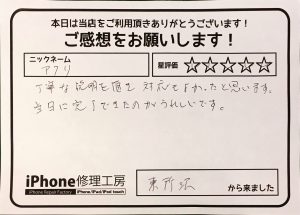 本日は当店をご利用頂きありがとうございます!
ご感想をお願いします!
ニックネーム
アフリ
星評価 ☆☆☆☆☆
丁寧な説明を頂き 対応もよかったと思います。
当日に完了できたのがうれしいです。
iPhone修理工房
iPhone Repair Factory iPhone/iPad/iPod touch
東所沢 から来ました